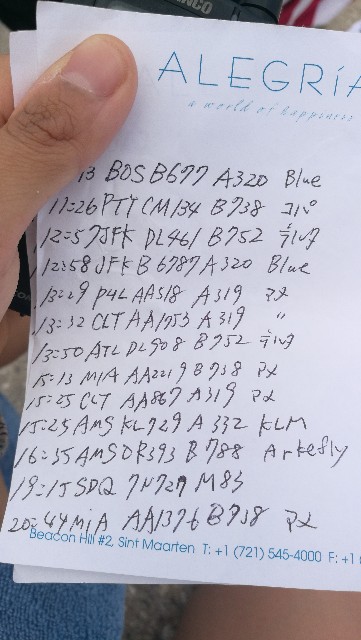 ALEGRÍA
a world of happiness
13 BOS B677 A320 Blue
11=26 PTY CM134 B738 コパ
12=57 JFK DL461 B752 デルタ
12=58 JFK B6787 A320 Blue
13=29 AA518 A319 アメ
13=32 CLT AA1753 A319 "
13=50 ATL DL908 B752 デルタ
15=13 MIA AA2219 B738 アメ
15=25 CLT AA867 A319 アメ
15=25 AMS KL729 A332 KLM
16=35 AMS OR393 B788 Arkefly
19=15 SDQ 7N727 M83
20=44 MIA AA1376 B738 アメ
Beacon Hill #2, Sint Maarten T: +1 (721) 545-4000 F: +1